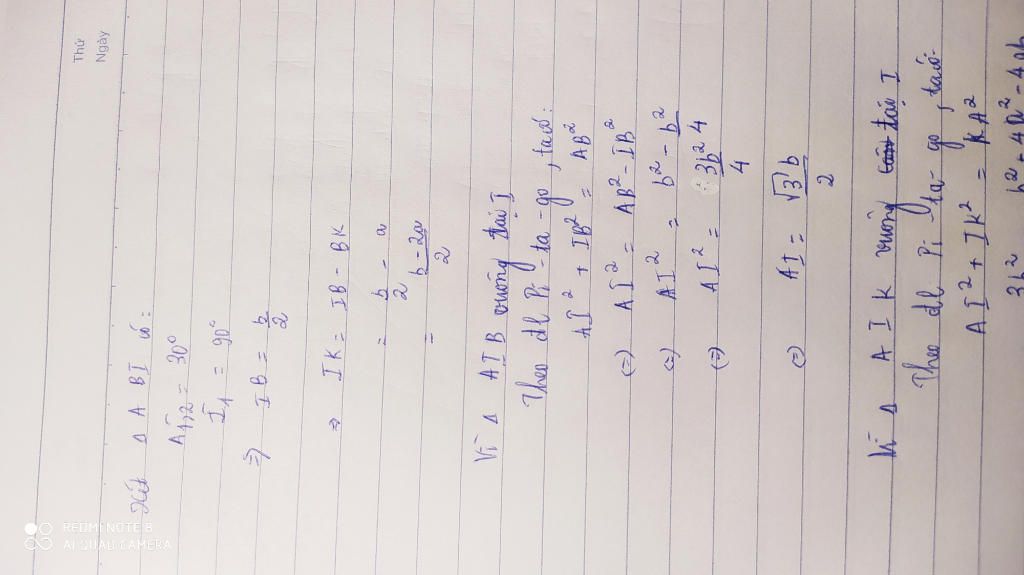 Thứ
Ngày
Xét Δ ABI có:
Â1,2 = 30°
Î1 = 90°
⇒ IB = b/2
⇒ IK = IB - BK
= b/2 - a
= b-2a/2
Vì Δ AIB vuông tại I
Theo đl Pi-ta-go, ta có:
AI² + IB² = AB²
(=) AI² = AB² - IB²
(=) AI² = b² - b²/4
(=) AI² = 3b²/4
(=) AI = √3 b/2
Vì Δ AIK vuông tại I
Theo đl Pi-ta-go, ta có:
AI² + IK² = KA²
3b² b² + 4a² - 4ab
REDMI NOTE 8
AI QUAD CAMERA